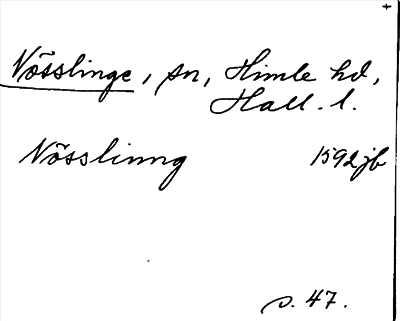 Nösslinge, sn, Himle hd,
Hall. l.
Nösslinng 1592 jb
s. 47.